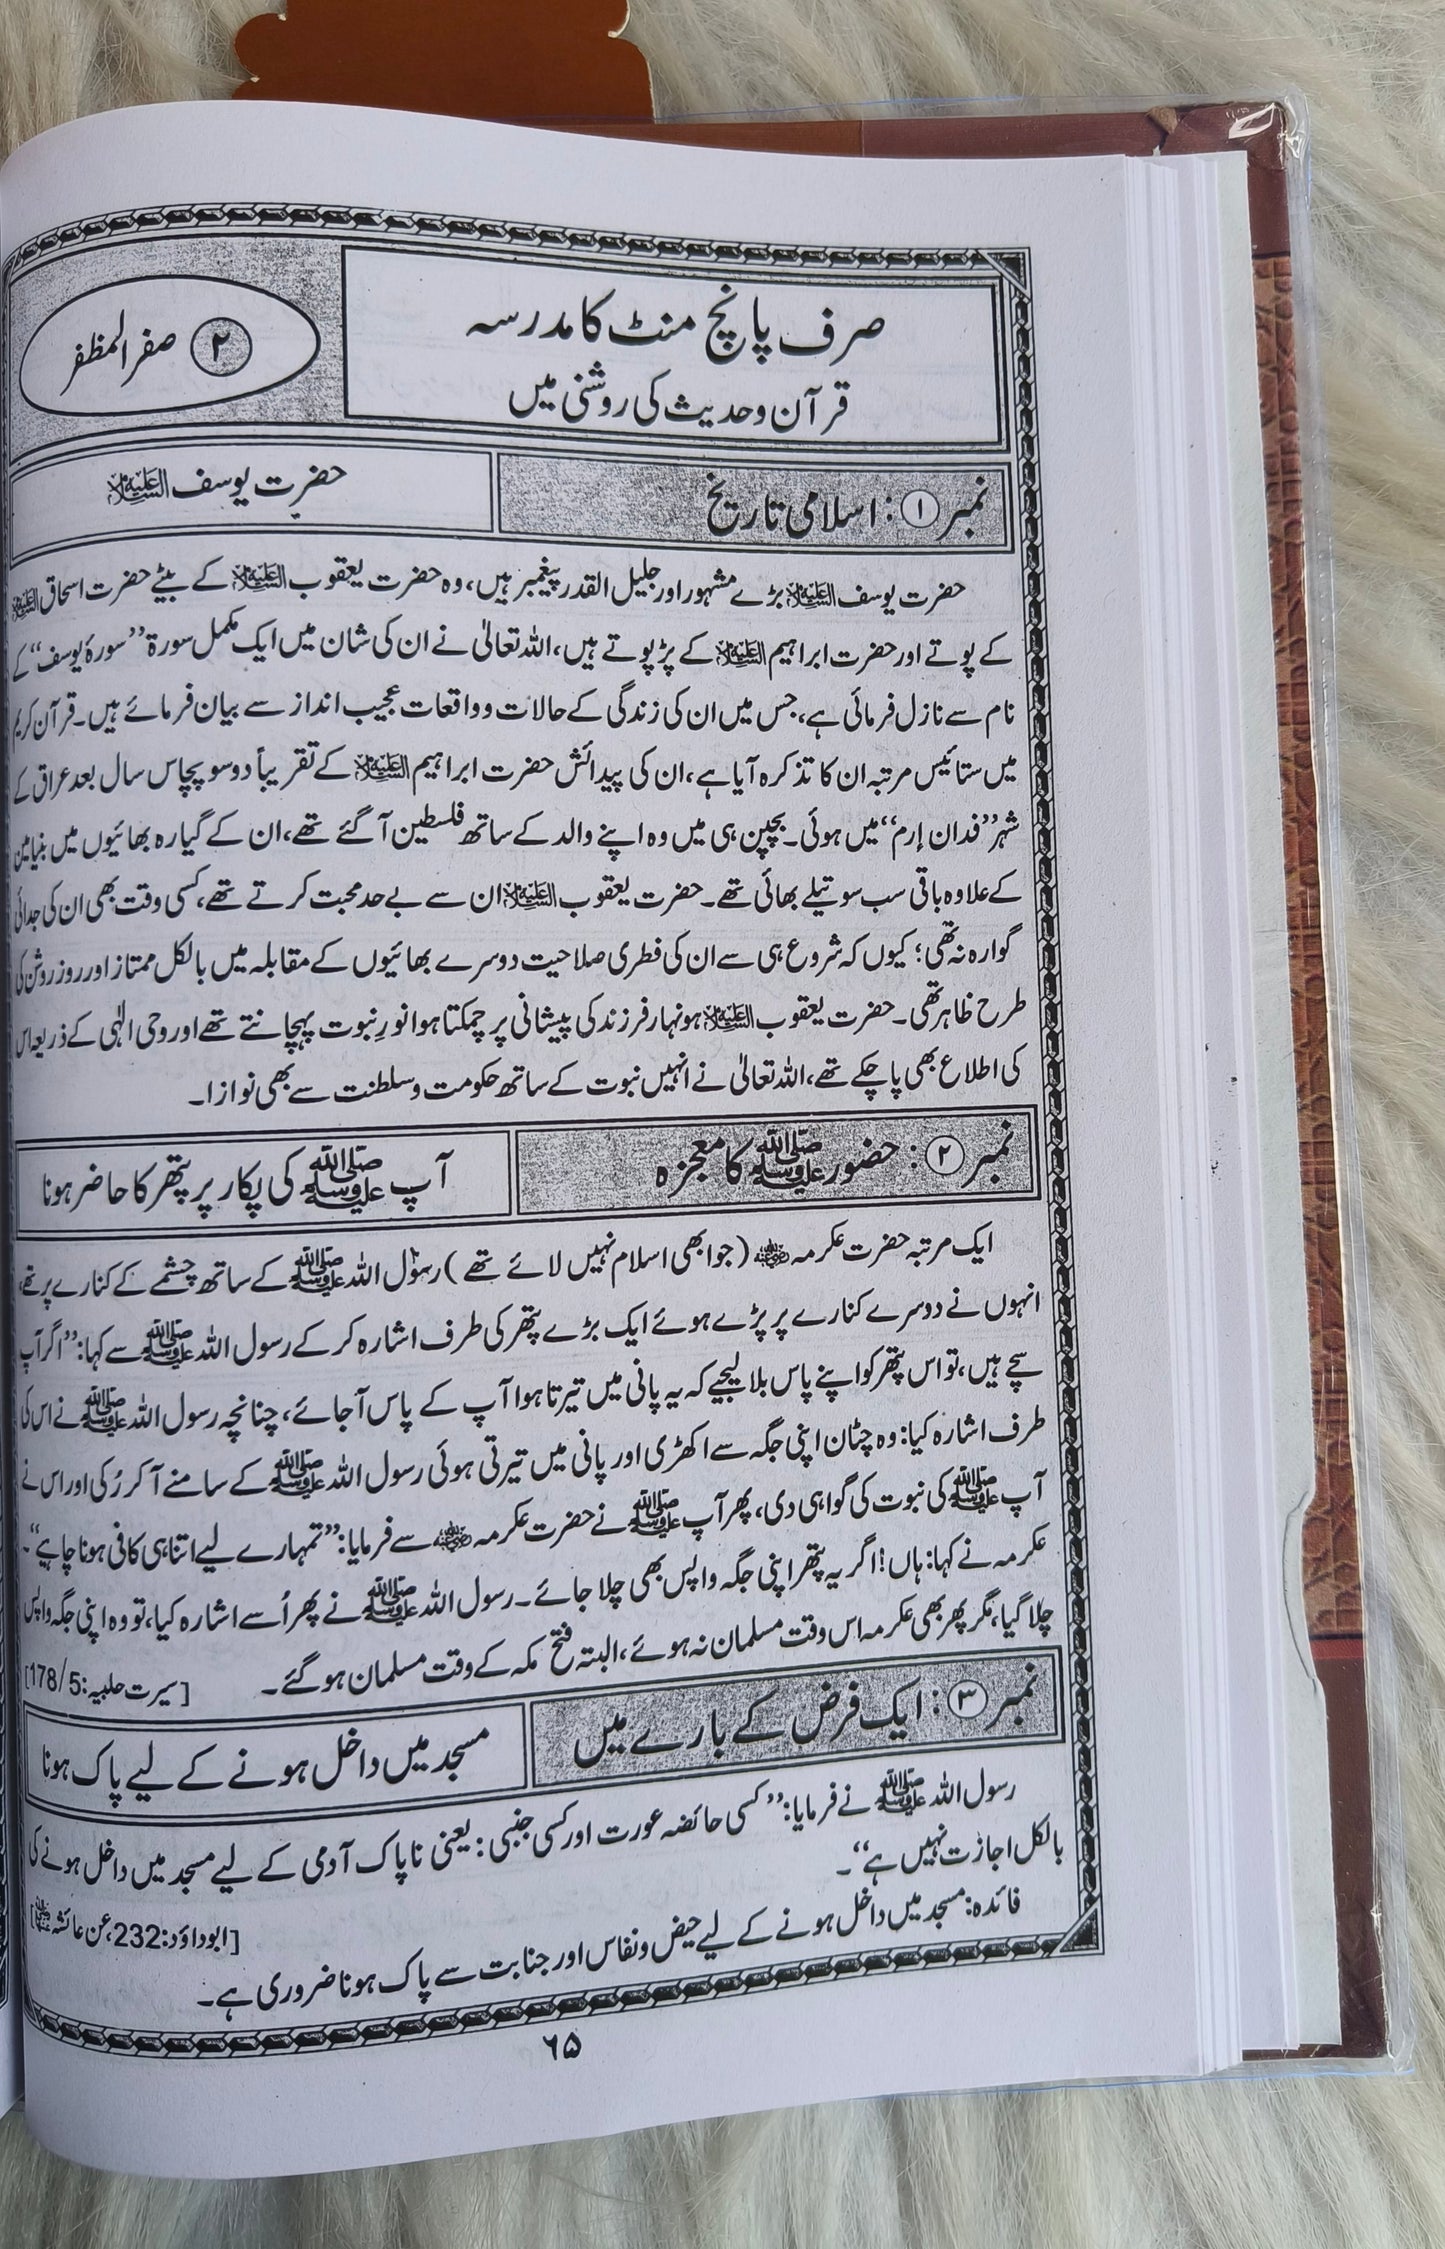 صرف پانچ منٹ کا مدرسہ
قرآن و حدیث کی روشنی میں
۲ صفر المظفر
نمبر ۱ : اسلامی تاریخ
حضرت یوسف علیہ السلام
حضرت یوسف علیہ السلام بڑے مشہور اور جلیل القدر پیغمبر ہیں، وہ حضرت یعقوب علیہ السلام کے بیٹے حضرت اسحاق علیہ السلام
کے پوتے اور حضرت ابراہیم علیہ السلام کے پڑپوتے ہیں، اللہ تعالیٰ نے ان کی شان میں ایک مکمل سورۃ ’’سورۂ یوسف‘‘ کے
نام سے نازل فرمائی ہے، جس میں ان کی زندگی کے حالات و واقعات عجیب انداز سے بیان فرمائے ہیں۔ قرآن کریم
میں ستائیس مرتبہ ان کا تذکرہ آیا ہے، ان کی پیدائش حضرت ابراہیم علیہ السلام کے تقریباً دو سو پچاس سال بعد عراق کے
شہر ’’فدان اِرم‘‘ میں ہوئی۔ بچپن ہی میں وہ اپنے والد کے ساتھ فلسطین آگئے تھے، ان کے گیارہ بھائیوں میں بنیامین
کے علاوہ باقی سب سوتیلے بھائی تھے۔ حضرت یعقوب علیہ السلام ان سے بے حد محبت کرتے تھے، کسی وقت بھی ان کی جدائی
گوارہ نہ تھی؛ کیوں کہ شروع ہی سے ان کی فطری صلاحیت دوسرے بھائیوں کے مقابلہ میں بالکل ممتاز اور روز روشن کی
طرح ظاہر تھی۔ حضرت یعقوب علیہ السلام ہونہار فرزند کی پیشانی پر چمکتا ہوا نورِ نبوت پہچانتے تھے اور وحی الٰہی کے ذریعہ اس
کی اطلاع بھی پا چکے تھے، اللہ تعالیٰ نے انہیں نبوت کے ساتھ حکومت و سلطنت سے بھی نوازا۔
نمبر ۲ : حضور ﷺ کا معجزہ
آپ ﷺ کی پکار پر پتھر کا حاضر ہونا
ایک مرتبہ حضرت عکرمہ رضی اللہ عنہ (جو ابھی اسلام نہیں لائے تھے) رسول اللہ ﷺ کے ساتھ چشمے کے کنارے پر تھے،
انہوں نے دوسرے کنارے پر پڑے ہوئے ایک بڑے پتھر کی طرف اشارہ کر کے رسول اللہ ﷺ سے کہا: ’’اگر آپ
سچے ہیں، تو اس پتھر کو اپنے پاس بلا لیجیے کہ یہ پانی میں تیرتا ہوا آپ کے پاس آجائے، چنانچہ رسول اللہ ﷺ نے اس کی
طرف اشارہ کیا: وہ چٹان اپنی جگہ سے اکھڑی اور پانی میں تیرتی ہوئی رسول اللہ ﷺ کے سامنے آکر رُکی اور اس نے
آپ ﷺ کی نبوت کی گواہی دی، پھر آپ ﷺ نے حضرت عکرمہ رضی اللہ عنہ سے فرمایا: ’’تمہارے لیے اتنا ہی کافی ہونا چاہیے‘‘۔
عکرمہ نے کہا: ہاں! اگر یہ پتھر اپنی جگہ واپس بھی چلا جائے۔ رسول اللہ ﷺ نے پھر اُسے اشارہ کیا، تو وہ اپنی جگہ واپس
چلا گیا، مگر پھر بھی عکرمہ اس وقت مسلمان نہ ہوئے، البتہ فتح مکہ کے وقت مسلمان ہوگئے۔
[سیرت حلبیہ: 178/5]
نمبر ۳ : ایک فرض کے بارے میں
مسجد میں داخل ہونے کے لیے پاک ہونا
رسول اللہ ﷺ نے فرمایا: ’’کسی حائضہ عورت اور کسی جنبی: یعنی ناپاک آدمی کے لیے مسجد میں داخل ہونے کی
بالکل اجازت نہیں ہے‘‘۔
[ابوداؤد: 232، عن عائشہ رضی اللہ عنہا]
فائدہ: مسجد میں داخل ہونے کے لیے حیض و نفاس اور جنابت سے پاک ہونا ضروری ہے۔
۶۵